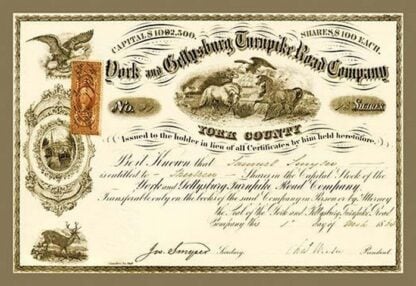 CAPITAL $ 1092,500. SHARES $ 100 EACH.
York and Gettysburg Turnpike Road Company
No. SHARES
YORK COUNTY
(Issued to the holder in lieu of all Certificates by him held heretofore.)
Be it Known that Samuel Smyser
is entitled to Shares in the Capital Stock of the
York and Gettysburg Turnpike Road Company.
Transferable only on the books of the said Company in Person or by Attorney
the Seal of the York and Gettysburg Turnpike Road
Company this 1st day of 18
Jos. Smyser Secretary. President